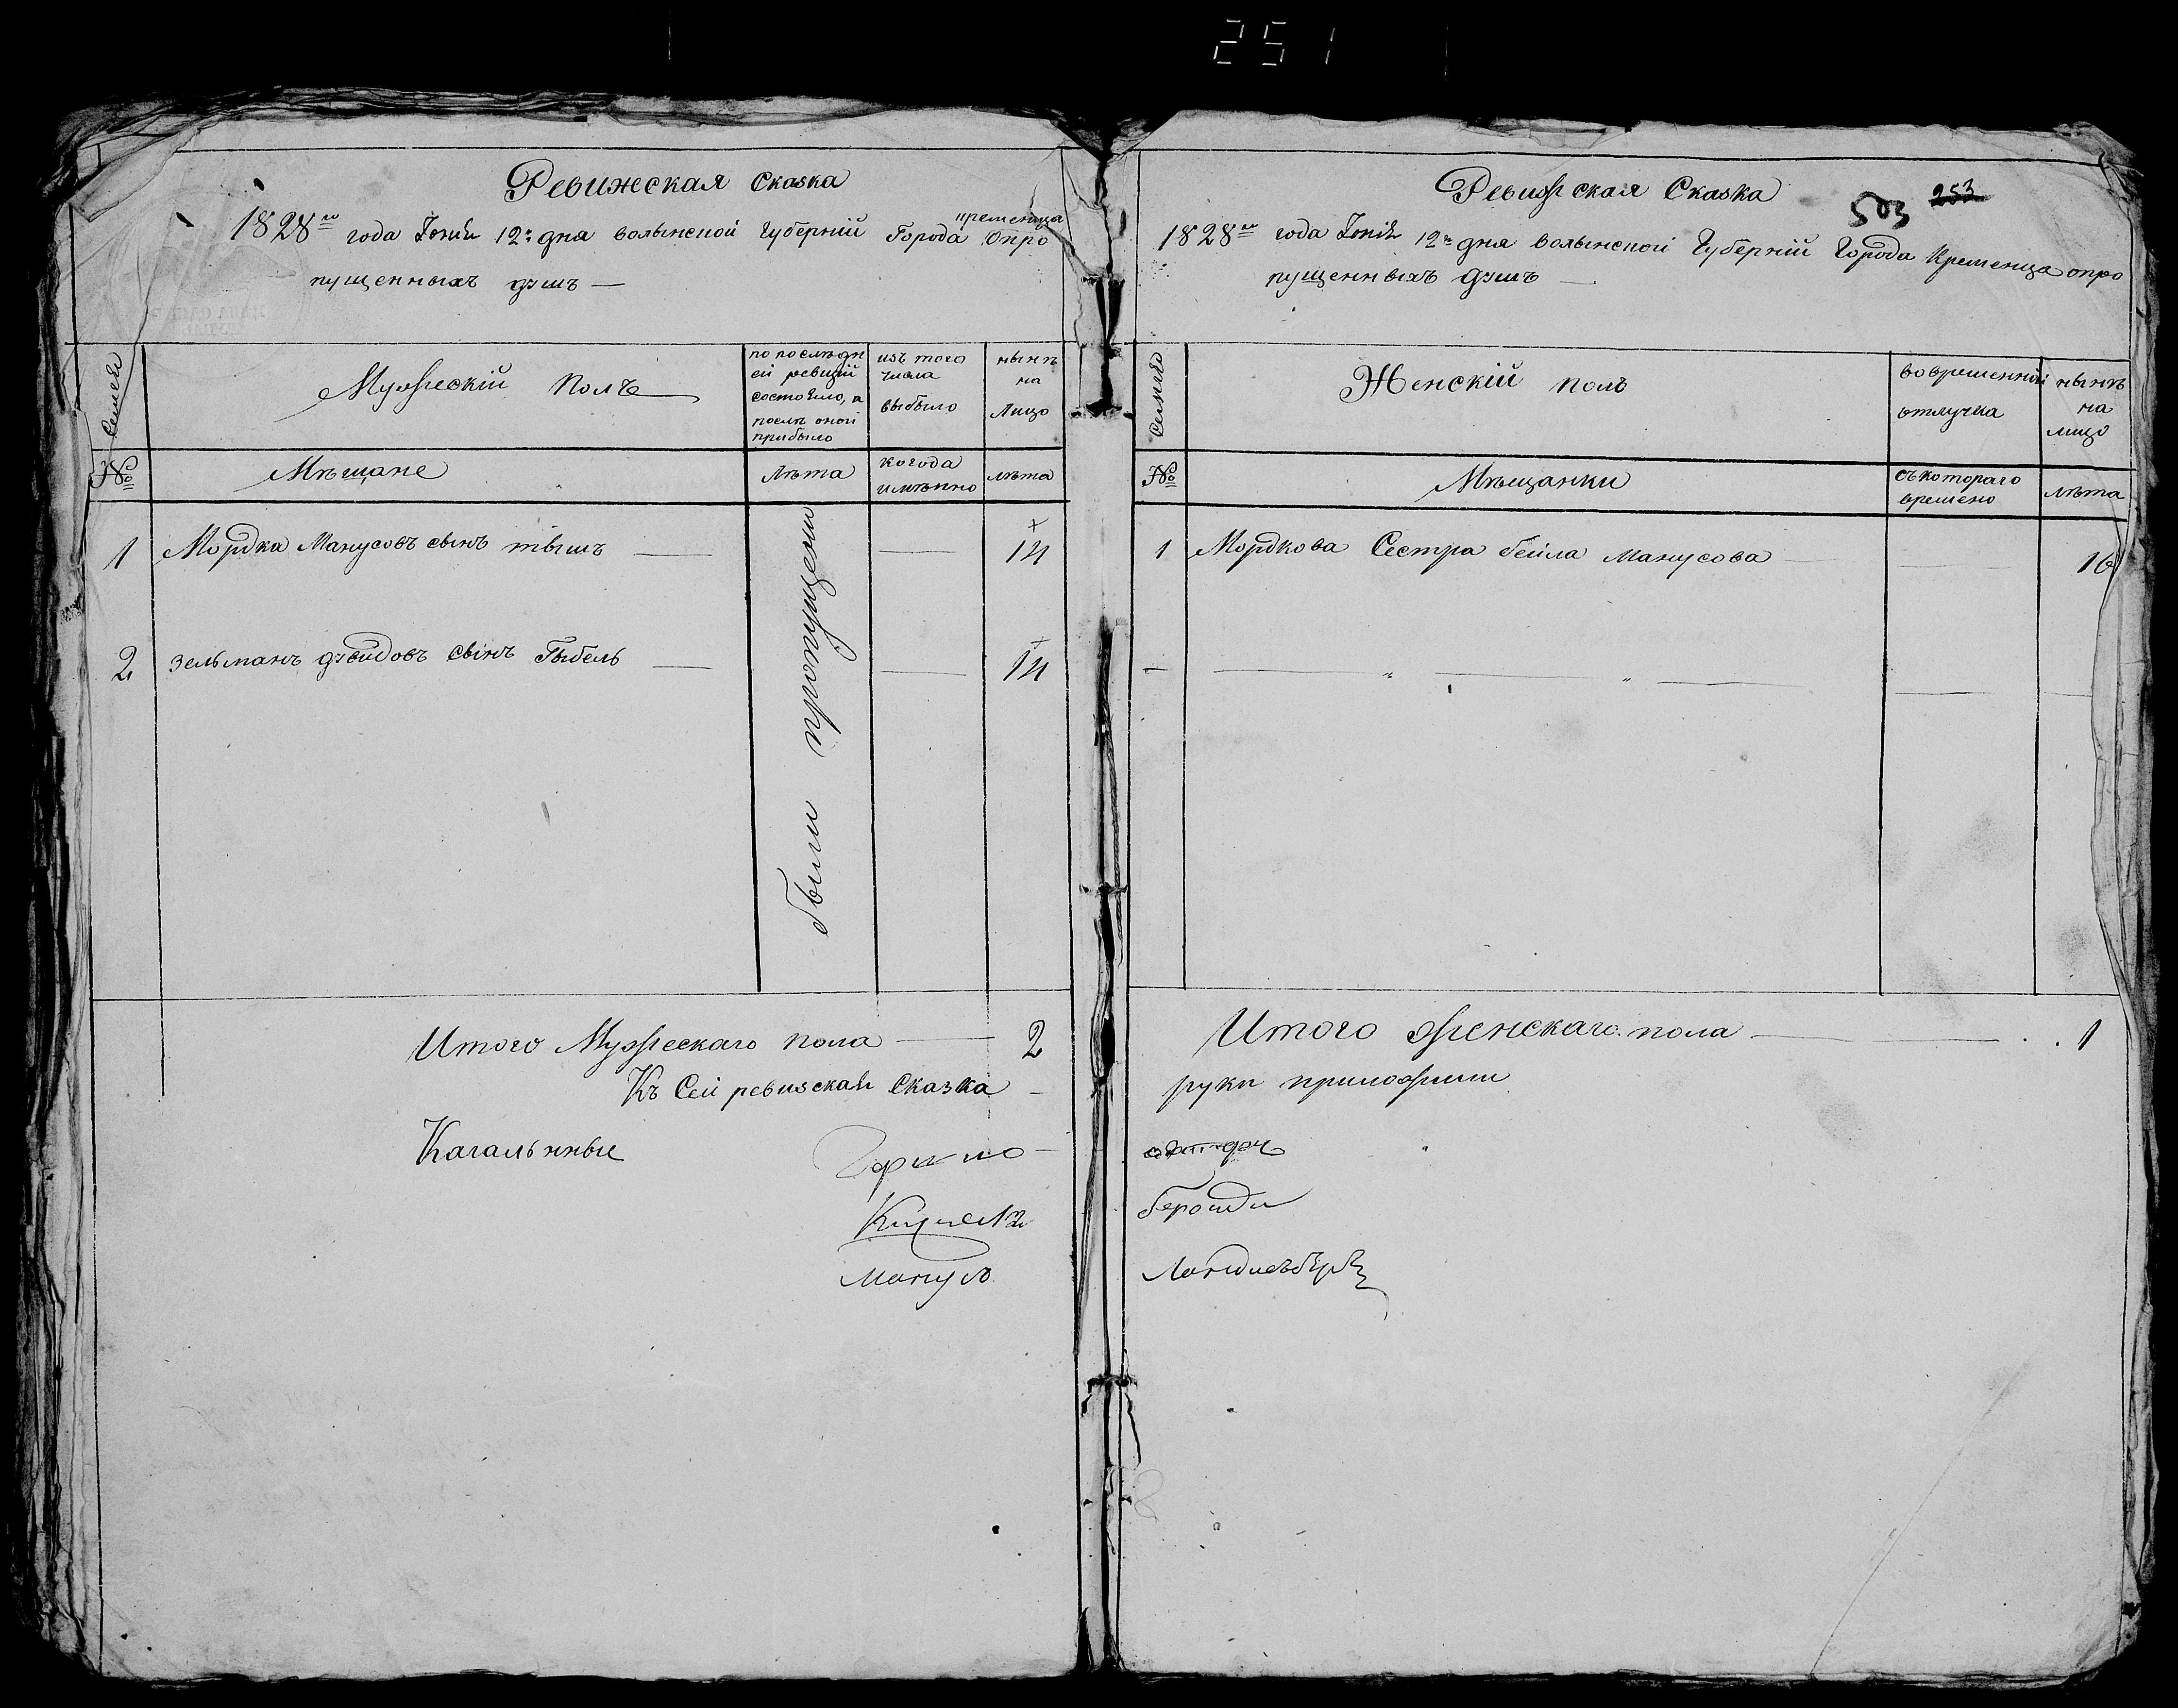 251
Ревижская Сказка
кременца
1828го года Іюня 12го дня волынской Губерніи Города Опро
пущенныхъ душъ —
Семьи
Мужескій Полъ
по послѣдн
ей ревизіи
состояло, а
послѣ оной
прибыло
изъ того
числа
выбыло
нынѣ
на
лицо
№
Мѣщане
Лѣта
когода
имѣнно
лѣта
1 Мордка Манусовъ сынъ — 14
2 Зельманъ дувидовъ Сынъ Гыбель — 14
были пропущени
Итого Мужескаго пола — 2
Къ Сей ревизская Сказка —
Кагальнные
Манус
503 253
Ревизская Сказка
1828го года Іюня 12го дня волынской Губерніи Города Кременца опро
пущенныхъ душъ —
Семьи
Женскій полъ
вовременной
отлучка
нынѣ
на
лицо
№
Мѣщанки
съкотораго
времено
лѣта
1 Мордкова Сестра бейла Манусова — 16
Итого женскаго пола — 1
руки приложили